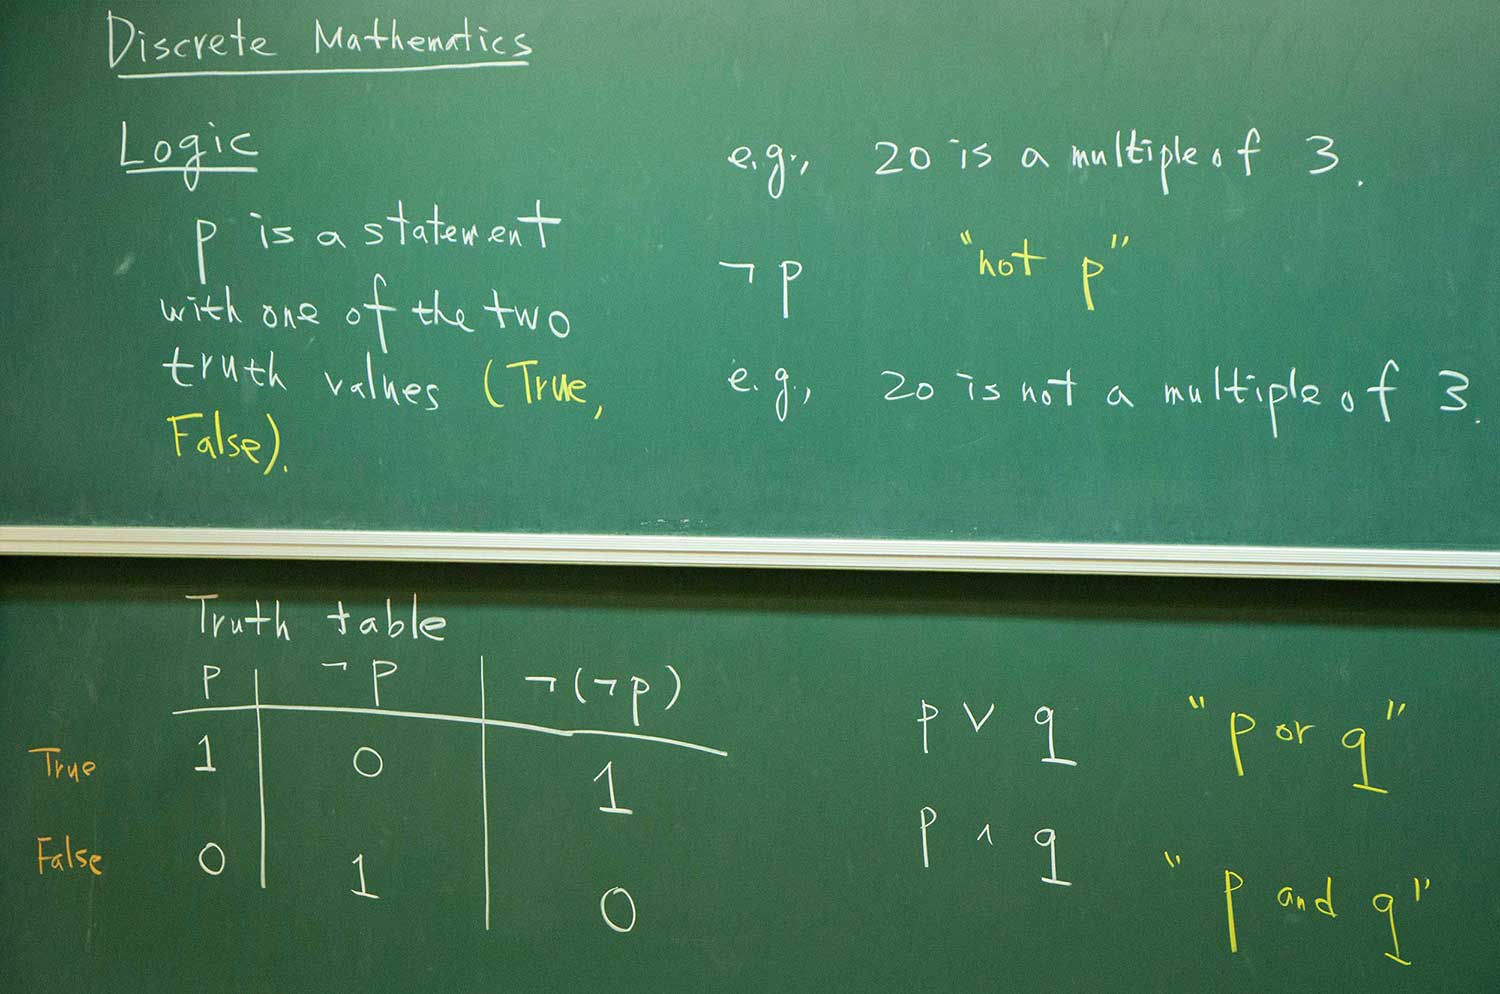 Discrete Mathematics
Logic
p is a statement
with one of the two
truth values (True,
False).
e.g., 20 is a multiple of 3.
¬p "not p"
e.g., 20 is not a multiple of 3.
Truth table
p ¬p ¬(¬p)
True 1 0 1
False 0 1 0
p ∨ q "p or q"
p ∧ q "p and q"